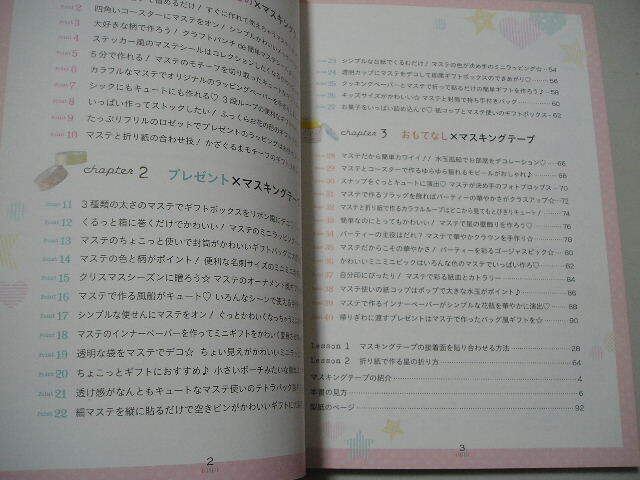 の×マスキングテ
point 2 四角いコースターにマステをオン!シンプルかわいい
point 3 大好きな柄で作ろう!クラフトパンチ de 簡単マステ
point 4 ステッカー風のマステシールはコレクションしたくなる
point 5 5分で作れる!マステのモチーフを切り取ったキュート
point 6 カラフルなマステでオリジナルのラッピングペーパーを
point 7 シックにもキュートにも作れる♡ 3段ループの便利な
point 8 いっぱい作ってストックしたい!ふっくらお花の
point 9 たっぷりフリルのロゼットでプレゼントのラッピング
point 10 マステと折り紙の合わせ技!かざぐるまモチーフの
chapter 2 プレゼント×マスキングテー
point 11 3種類の太さのマステでギフトボックスをリボン風にデコ
point 12 くるっと箱に巻くだけでかわいい!マステのミニラッピン
point 13 マステのちょこっと使いで封筒がかわいいギフトバッグに
point 14 マステの色と柄がポイント!便利な名刺サイズのミニミニ
point 15 クリスマスシーズンに贈ろう☆マステのオーナメント風
point 16 マステで作る風船がキュート♡ いろんなシーンで使える
point 17 シンプルな便せんにマステをオン!ぐっとかわいくなっちゃう
point 18 マステのインナーペーパーを作ってミニギフトをかわいく
point 19 透明な袋をマステでデコ☆ ちょい見えがかわいいミニラッ
point 20 ちょこっとギフトにおすすめ♪ 小さいポーチみたいな
point 21 透け感がなんともキュートなマステ使いのテトラパック
point 22 細マステを縦に貼るだけで空きビンがかわいいギフトに
2
point 23 シンプルな台紙でくるむだけ!マステの色が決め手のミニラッピング☆ 54
point 24 透明カップにマステをデコして即席ギフトボックスのできあがり♡ 56
point 25 クッキングペーパーとマステで折って貼るだけの簡単ギフトを作ろう♪ 58
point 26 キッズサイズがかわいい☆ マステと封筒で持ち手付きバッグ 60
point 27 お菓子をいっぱい詰め込んで♡ 紙コップとマステ使いのギフトボックス 62
chapter 3 おもてなし×マスキングテープ
point 28 マステだから簡単カワイイ!水玉風船でお部屋をデコレーション♡ 66
point 29 マステとコースターで作るゆらゆら揺れるモビールがおしゃれ♪ 68
point 30 スナップをぐっとキュートに演出♡ マステが決め手のフォトプロップス 70
point 31 マステで作るフラッグを飾ればパーティーの華やかさがクラスアップ☆ 72
point 32 マステと折り紙で作るカラフルループはどこから見てもとびきりキュート! 74
point 33 簡単なのにとってもかわいい!マステで星の壁飾りを作ろう♡ 76
point 34 パーティーの主役はだれ?マステで華やかクラウンを手作り☆ 78
point 35 マステだからこその華やかさ!パーティーを彩るゴージャスピック☆ 80
point 36 かわいいミニミニピックはいろんな色のマステでいっぱい作ろ♡ 82
point 37 自分印にぴったり!マステで彩る紙皿とカトラリー 84
point 38 マステ使いの紙コップはポップで大きな水玉がポイント♪ 86
point 39 マステで作るインナーペーパーがシンプルな花瓶を華やかに演出♡ 88
point 40 帰りぎわに渡すプレゼントはマステで作ったバッグ風ギフトを☆ 90
Lesson 1 マスキングテープの接着面を貼り合わせる方法 28
Lesson 2 折り紙で作る星の折り方 64
マスキングテープの紹介 4
本書の見方 6
型紙のページ 92
3